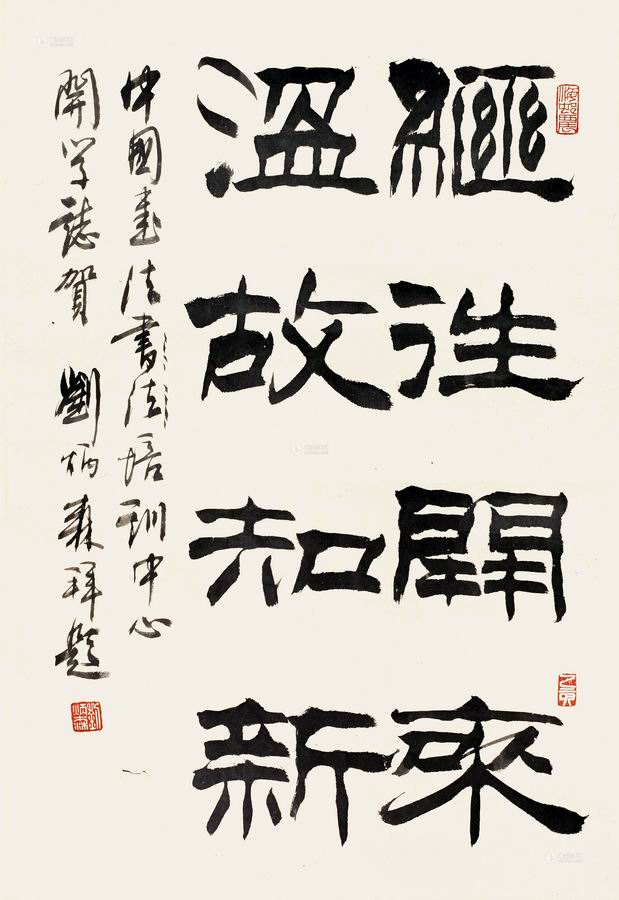 繼往開來
溫故知新
中國書法書法培訓中心
開學誌賀 劉炳森拜題
劉炳森